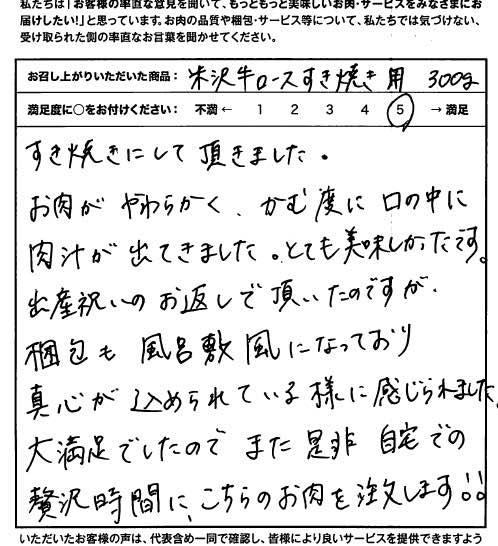 私たちは「お客様の率直な意見を聞いて、もっともっと美味しいお肉・サービスをみなさまにお
届けしたい!」と思っています。お肉の品質や梱包・サービス等について、私たちでは気づけない、
受け取られた側の率直なお言葉を聞かせてください。
お召し上がりいただいた商品: 米沢牛ロースすき焼き用 300g
満足度に〇をお付けください: 不満 ← 1 2 3 4 5 → 満足
すき焼きにして頂きました。
お肉がやわらかく、かむ度に口の中に
肉汁が出てきました。とても美味しかったです。
出産祝いのお返しで頂いたのですが、
梱包も風呂敷風になっており
真心が込められている様に感じられました。
大満足でしたのでまた是非自宅での
贅沢時間に、こちらのお肉を注文します!!
いただいたお客様の声は、代表含め一同で確認し、皆様により良いサービスを提供できますよう